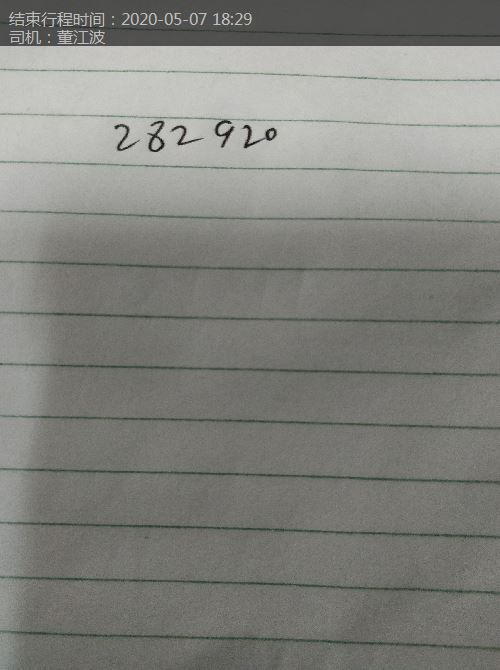 结束行程时间：2020-05-07 18:29
司机：董江波
282920